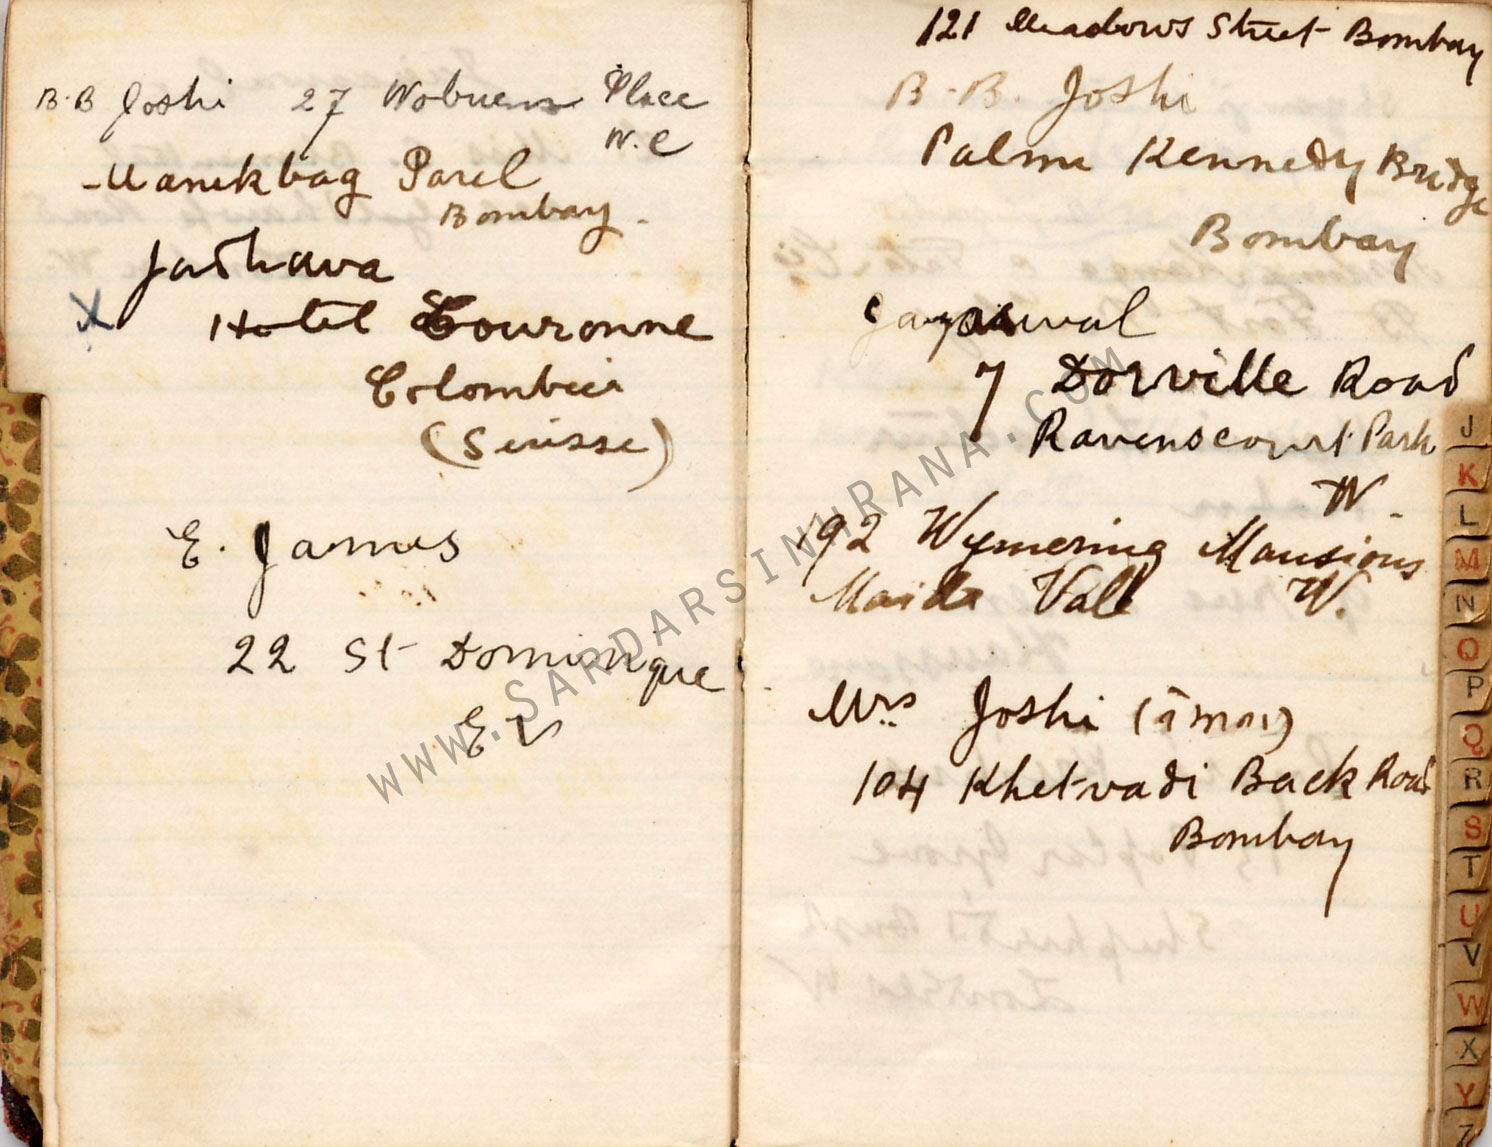 B.B Joshi 27 Woburn Place
W.C
Manekbag Parel
Bombay.
Jadhava
X Hotel Couronne
Colombier
(Suisse)
E. James
22 St Dominique
E V
121 Meadows Street Bombay
B.B. Joshi
Palm Kennedy Bridge
Bombay
Jayaswal
7 Dorville Road
Ravenscourt Park
W.
192 Wymering Mansions
Maida Vale W.
Mrs Joshi
104 Khetvadi Back Road
Bombay
J
K
L
M
N
O
P
Q
R
S
T
U
V
W
X
Y
Z
WWW.SARDARSINHRANA.COM